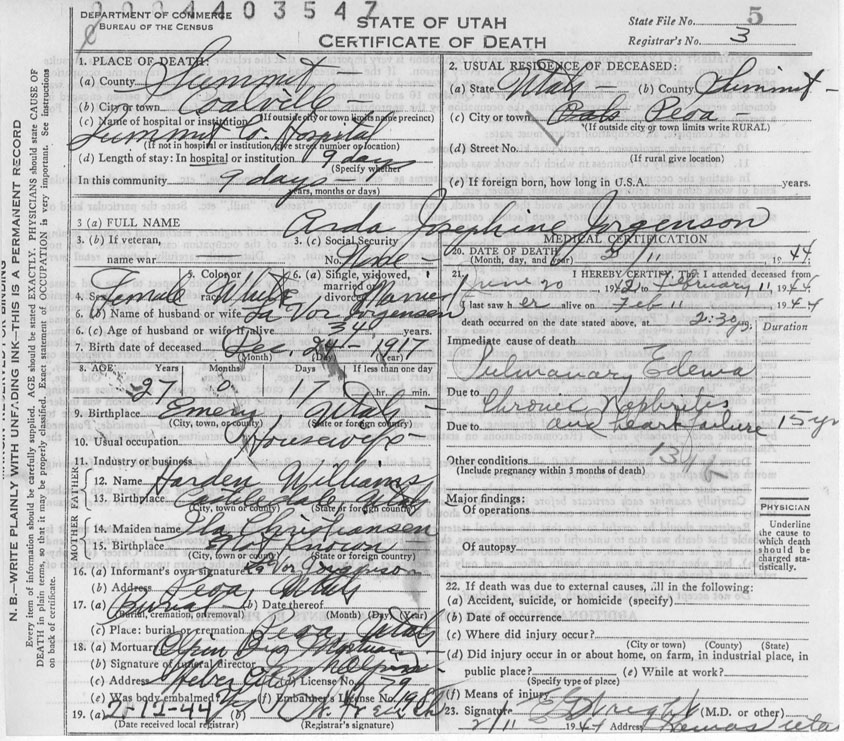 2024403547
DEPARTMENT OF COMMERCE
BUREAU OF THE CENSUS
STATE OF UTAH
CERTIFICATE OF DEATH
State File No. 5
Registrar's No. 3
N. B.—WRITE PLAINLY WITH UNFADING INK—THIS IS A PERMANENT RECORD
Every item of information should be carefully supplied. AGE should be stated EXACTLY. PHYSICIANS should state CAUSE OF
DEATH in plain terms, so that it may be properly classified. Exact statement of OCCUPATION is very important. See instructions
on back of certificate.
1. PLACE OF DEATH:
(a) County Summit
(b) City or town Coalville
(If outside city or town limits name precinct)
(c) Name of hospital or institution
Summit Co. Hospital
(If not in hospital or institution, give street number or location)
(d) Length of stay: In hospital or institution 9 days
(Specify whether
In this community 9 days
years, months or days)
2. USUAL RESIDENCE OF DECEASED:
(a) State Utah (b) County Summit
(c) City or town Peoa
(If outside city or town limits write RURAL)
(d) Street No.
(If rural give location)
(e) If foreign born, how long in U.S.A. years.
3 (a) FULL NAME Arda Josephine Jorgenson
3. (b) If veteran,
name war
3. (c) Social Security
No. None
4. Sex Female
5. Color or
race White
6. (a) Single, widowed,
married or
divorced Married
6. (b) Name of husband or wife La Vor Jorgensen
6. (c) Age of husband or wife if alive 34 years.
7. Birth date of deceased Dec. 24 1917
(Month) (Day) (Year)
8. AGE Years Months Days If less than one day
27 0 17 hr. min.
9. Birthplace Emery Utah
(City, town, or county) (State or foreign country)
10. Usual occupation Housewife
11. Industry or business
FATHER
12. Name Harden Williams
13. Birthplace Castledale Utah
(City, town or county) (State or foreign country)
MOTHER
14. Maiden name Ila Christiansen
15. Birthplace Not Known
(City, town or county) (State or foreign country)
16. (a) Informant's own signature La Vor Jorgenson
(b) Address Peoa, Utah
17. (a) Burial (b) Date thereof
(Burial, cremation, or removal) (Month) (Day) (Year)
(c) Place: burial or cremation Peoa Utah
18. (a) Mortuary Olpin Bros Mortuary
(b) Signature of funeral director
(c) Address Heber Utah (d) License No. 79
(e) Was body embalmed? (f) Embalmer's License No.
19. (a) 2-12-44 (b)
(Date received local registrar) (Registrar's signature)
MEDICAL CERTIFICATION
20. DATE OF DEATH
(Month, day, and year) 11, 1944
21. I HEREBY CERTIFY, That I attended deceased from
June 20 1942 to February 11, 1944
I last saw her alive on Feb 11 1944
death occurred on the date stated above, at 2:30 m.
Duration
Immediate cause of death
Pulmanary Edema
Due to Chronic Nephritis
Due to and heart failure 15 yr
Other conditions
(Include pregnancy within 3 months of death)
Major findings:
Of operations
Of autopsy
PHYSICIAN
Underline
the cause to
which death
should be
charged sta-
tistically.
22. If death was due to external causes, fill in the following:
(a) Accident, suicide, or homicide (specify)
(b) Date of occurrence
(c) Where did injury occur?
(City or town) (County) (State)
(d) Did injury occur in or about home, on farm, in industrial place, in
public place? (e) While at work?
(Specify type of place)
(f) Means of injury
23. Signature (M.D. or other)
2/11 1944 Address Kamas Utah